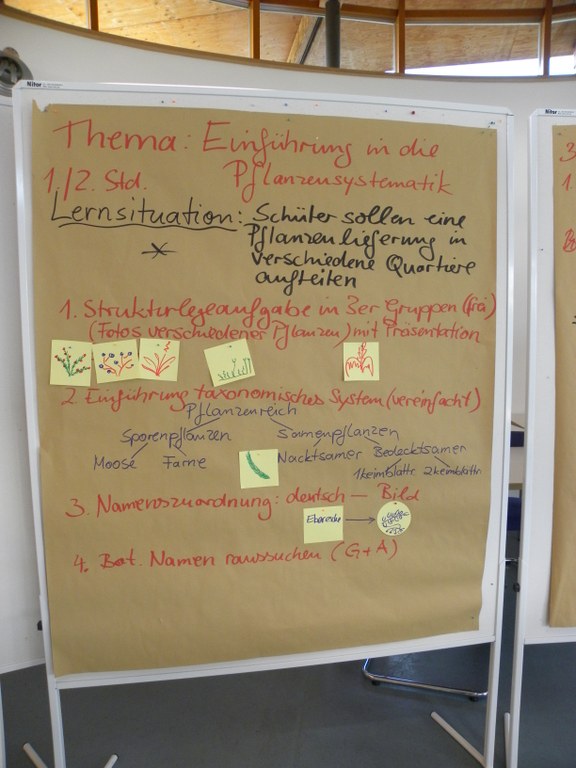 Nitor
Nitor
Thema: Einführung in die
Pflanzensystematik
1./2. Std.
Lernsituation: Schüler sollen eine
Pflanzenlieferung in
verschiedene Quartiere
aufteilen
1. Strukturlegeaufgabe in 3er Gruppen
(Fotos verschiedener Pflanzen) mit Präsentation
2. Einführung taxonomisches System (vereinfacht)
Pflanzenreich
Sporenpflanzen Samenpflanzen
Moose Farne Nacktsamer Bedecktsamer
1keimblattr. 2keimblättr.
3. Namenszuordnung: deutsch — Bild
4. Bot. Namen raussuchen (G+A)
3.
1.